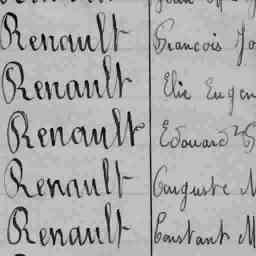 Renault François Jo
Renault Elie Eugen
Renault Edouard
Renault Auguste M
Renault Constant M